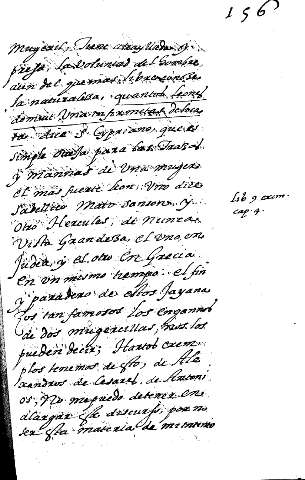 156
mugeril, tiene atraillada y
presa la voluntad del hombre
aun del que mas libre
la naturaleza, quantos leones
domuit Una
dice S. Cypriano, que es
simple para las trazas
y manias de una muger
el mas fuerte leon, uno dice
Sabellico Mato Sanson, y
otro Hercules, de nunca
vista Grandeza, el uno en
Judea, y el otro en Grecia
en un mismo tiempo. el fin
y paradero de estos Jayana
zos tan famosos los engannos
de dos mugercillas, los
pueden decir; Hartos exem
plos tenemos de esto, de Ale
xandros de Cesares, de Antoni
os, No me puedo detener en
alargar este discurso, por no
ser esta materia de mi
Lib 9 exem.
cap. 4.